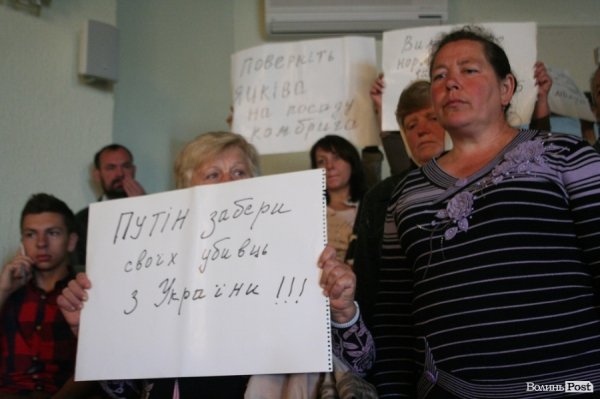 Поверніть
Яцківа
на посаду
комбрига
ПУТІН забери
своїх убивць
з України !!!
Волинь Post